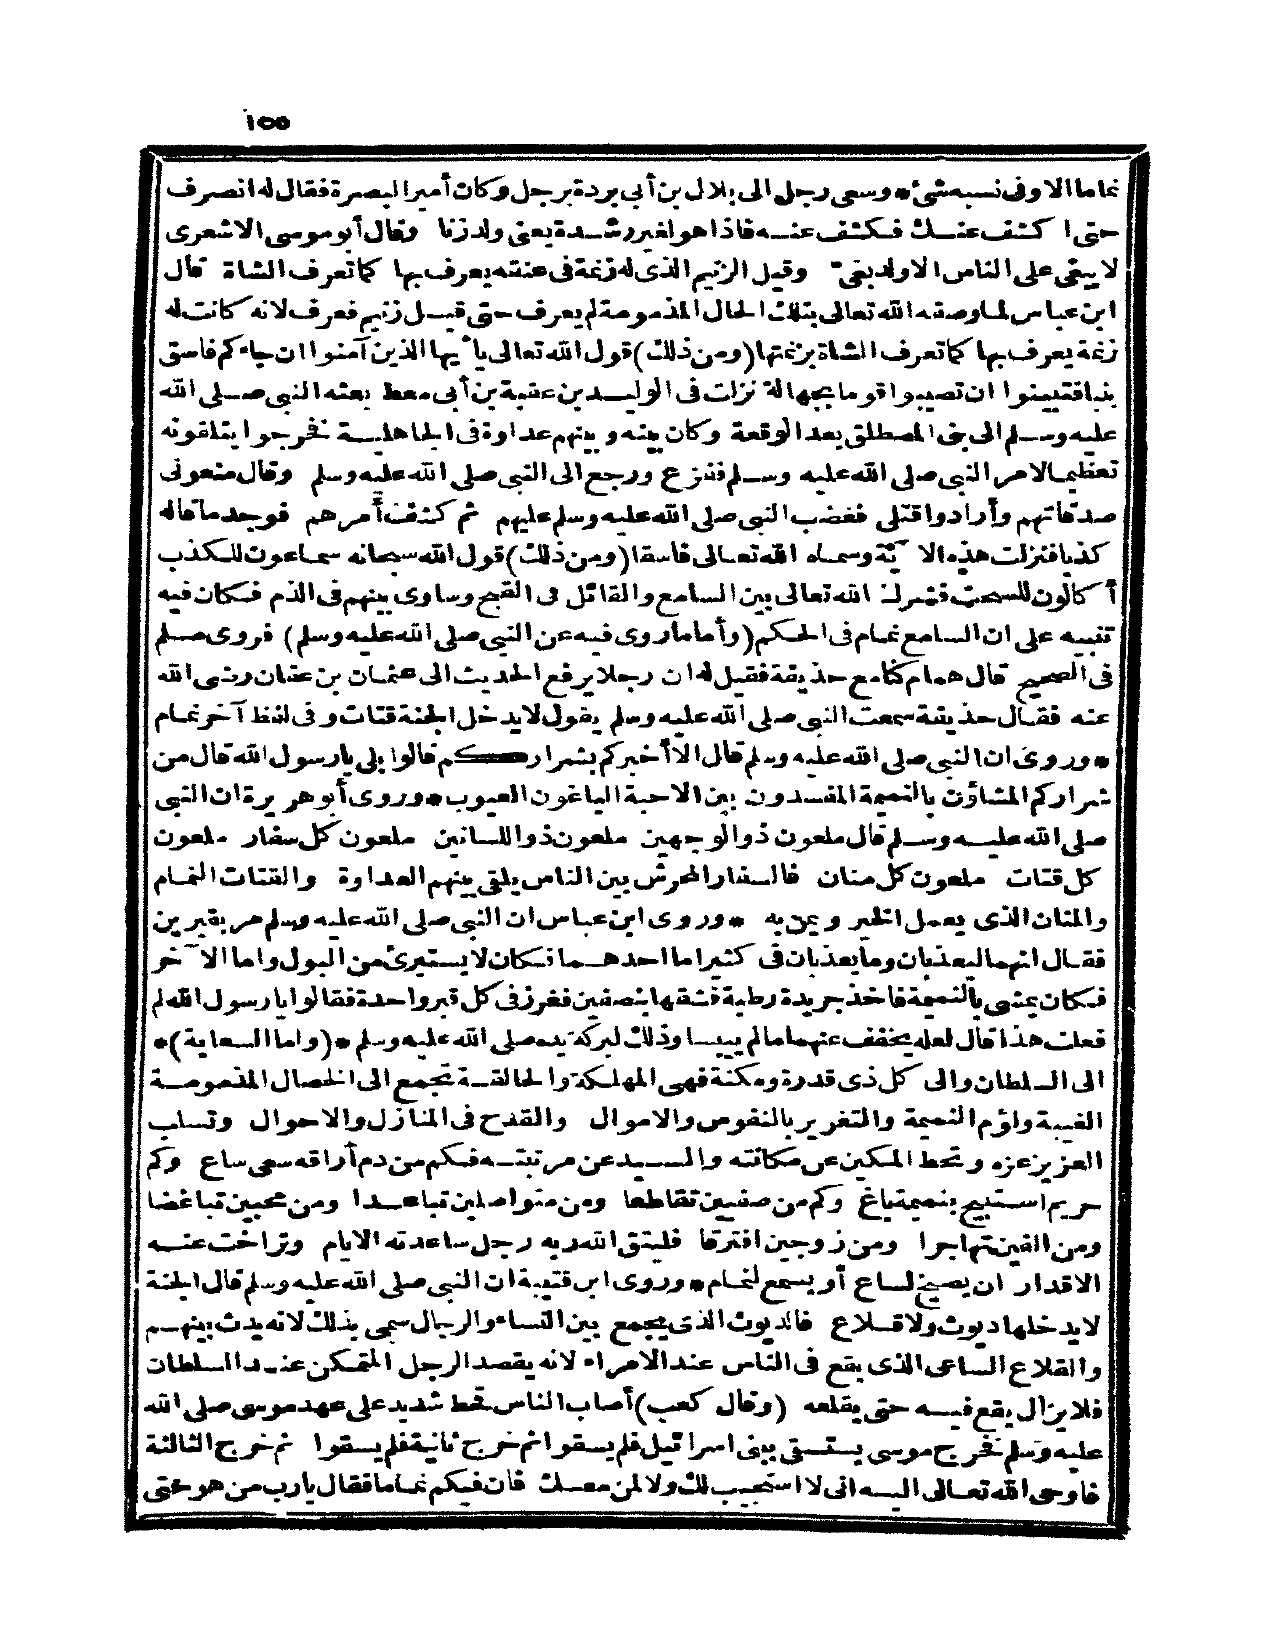 ١٥٥
نماما الا وفى نسبه شئ * وسعى رجل الى بلال بن أبى بردة برجل وكان أمير البصرة فقال له انصرف
حتى ا كشف عنك فكشف عنه فاذا هو لغير رشدة يعنى ولد زنا وقال أبو موسى الاشعرى
لا يبغى على الناس الا ولد بغى وقيل الزنيم الذى له زنمة فى عنقه يعرف بها كما تعرف الشاة قال
ابن عباس لما وصفه الله تعالى بتلك الحال المذمومة لم يعرف حتى قيل زنيم فعرف لانه كانت له
زنمة يعرف بها كما تعرف الشاة بزنمتها (ومن ذلك) قول الله تعالى يا أيها الذين آمنوا ان جاءكم فاسق
بنبا فتبينوا ان تصيبوا قوما بجهالة نزلت فى الوليد بن عقبة بن أبى معط بعثه النبى صلى الله
عليه وسلم الى بنى المصطلق بعد الوقعة وكان بينه وبينهم عداوة فى الجاهلية فخرجوا يتلقونه
تعظيما لامر النبى صلى الله عليه وسلم ففزع ورجع الى النبى صلى الله عليه وسلم وقال منعونى
صدقاتهم وأرادوا قتلى فغضب النبى صلى الله عليه وسلم عليهم ثم كشف أمرهم فوجد ما قاله
كذبا فنزلت هذه الآية وسماه الله تعالى فاسقا (ومن ذلك) قول الله سبحانه سماعون للكذب
أكالون للسحت فشرك الله تعالى بين السامع والقائل فى القبح وساوى بينهم فى الذم فكان فيه
تنبيه على ان السامع نمام فى الحكم (وأما ما روى فيه عن النبى صلى الله عليه وسلم) فروى مسلم
فى الصحيح قال همام كنا مع حذيفة فقيل له ان رجلا يرفع الحديث الى عثمان بن عفان رضى الله
عنه فقال حذيفة سمعت النبى صلى الله عليه وسلم يقول لا يدخل الجنة قتات وفى لفظ آخر نمام
* وروى ان النبى صلى الله عليه وسلم قال الا أخبركم بشراركم قالوا بلى يا رسول الله قال من
شراركم المشاؤن بالنميمة المفسدون بين الاحبة الباغون العيوب * وروى أبو هريرة ان النبى
صلى الله عليه وسلم قال ملعون ذو الوجهين ملعون ذو اللسانين ملعون كل سفار ملعون
كل قتات ملعون كل منان فالسفار المحرش بين الناس يلقى بينهم العداوة والقتات النمام
والمنان الذى يعمل الخير ويمن به * وروى ابن عباس ان النبى صلى الله عليه وسلم مر بقبرين
فقال انهما ليعذبان وما يعذبان فى كثير اما احدهما فكان لا يستبرئ من البول واما الآخر
فكان يمشى بالنميمة فاخذ جريدة رطبة فشقها بنصفين فغرز فى كل قبر واحدة فقالوا يا رسول الله لم
فعلت هذا قال لعله يخفف عنهما ما لم ييبسا وذلك لبركة يده صلى الله عليه وسلم * (واما السعاية) *
الى السلطان والى كل ذى قدرة ومكنة فهى المهلكة والحالقة تجمع الى الخصال المذمومة
الغيبة ولؤم النميمة والتغرير بالنفوس والاموال والقدح فى المنازل والاحوال وتسلب
العزيز عزه وتحط المكين عن مكانته والسيد عن مرتبته فكم من دم أراقه سعى ساع وكم
حريم استبيح بنميمة باغ وكم من صفيين تقاطعا ومن متواصلين تباعدا ومن محبين تباغضا
ومن الفين تهاجرا ومن زوجين افترقا فليتق الله ربه رجل ساعدته الايام وتراخت عنه
الاقدار ان يصيخ لساع أو يسمع لنمام * وروى ابن قتيبة ان النبى صلى الله عليه وسلم قال الجنة
لا يدخلها ديوث ولا قلاع فالديوث الذى يجمع بين النساء والرجال سمى بذلك لانه يدث بينهم
والقلاع الساعى الذى يقع فى الناس عند الامراء لانه يقصد الرجل المتمكن عند السلطان
فلا يزال يقع فيه حتى يقلعه (وقال كعب) أصاب الناس قحط شديد على عهد موسى صلى الله
عليه وسلم فخرج موسى يستسقى ببنى اسرائيل فلم يسقوا ثم خرج ثانية فلم يسقوا ثم خرج الثالثة
فاوحى الله تعالى اليه انى لا استجيب لك ولا لمن معك فان فيكم نماما فقال يا رب من هو حتى